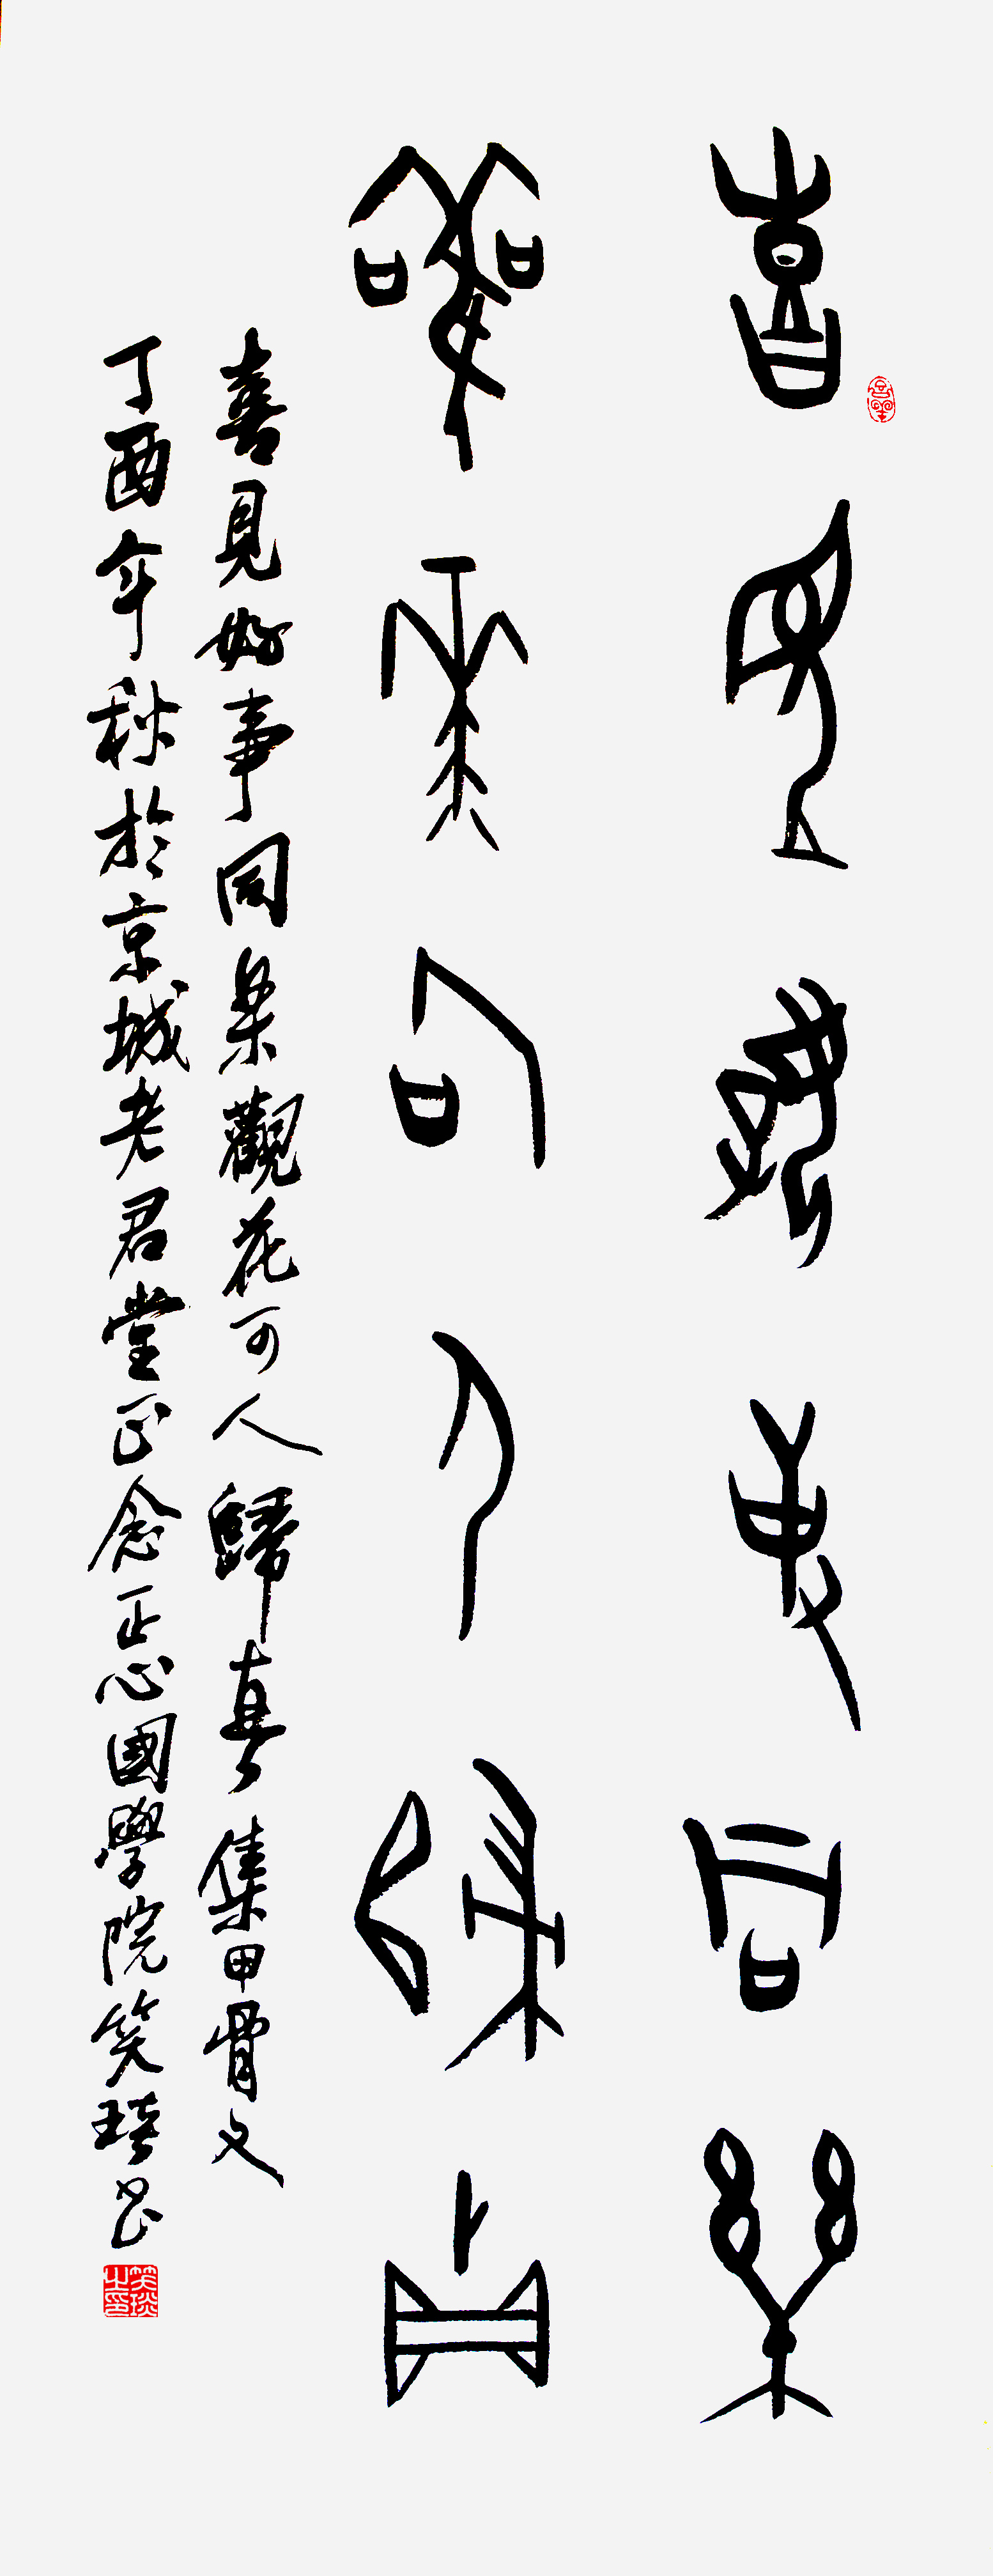 喜見好事同樂
觀花可人歸真
喜見好事同樂觀花可人歸真集甲骨文
丁酉年秋於京城老君堂正念正心國學院笑琰书